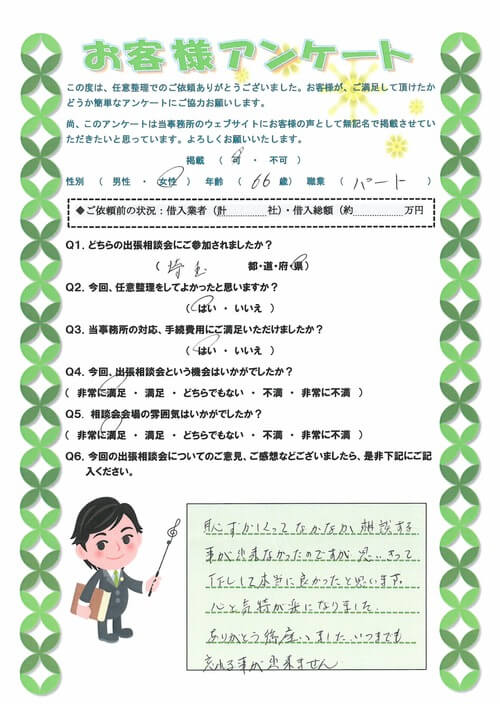 お客様アンケート
この度は、任意整理でのご依頼ありがとうございました。お客様が、ご満足して頂けたか
どうか簡単なアンケートにご協力お願いします。
尚、このアンケートは当事務所のウェブサイトにお客様の声として無記名で掲載させてい
ただきたいと思っています。よろしくお願いいたします。
掲載 （ 可 ・ 不可 ）
性別 （ 男性 ・ 女性 ） 年齢 （ 66 歳） 職業 （ パート ）
◆ご依頼前の状況：借入業者（計　　　社）・借入総額（約　　　万円
Q1．どちらの出張相談会にご参加されましたか？
（ 埼玉 都・道・府・県）
Q2．今回、任意整理をしてよかったと思いますか？
（ はい ・ いいえ ）
Q3．当事務所の対応、手続費用にご満足いただけましたか？
（ はい ・ いいえ ）
Q4．今回、出張相談会という機会はいかがでしたか？
（ 非常に満足 ・ 満足 ・ どちらでもない ・ 不満 ・ 非常に不満 ）
Q5． 相談会会場の雰囲気はいかがでしたか？
（ 非常に満足 ・ 満足 ・ どちらでもない ・ 不満 ・ 非常に不満 ）
Q6．今回の出張相談会についてのご意見、ご感想などございましたら、是非下記にご記
入ください。
恥ずかしくってなかなか相談する
事が出来なかったのですが思いきって
本当に良かったと思います。
心と気持が楽になりました
ありがとう御座いました いつまでも
忘れる事が出来ません